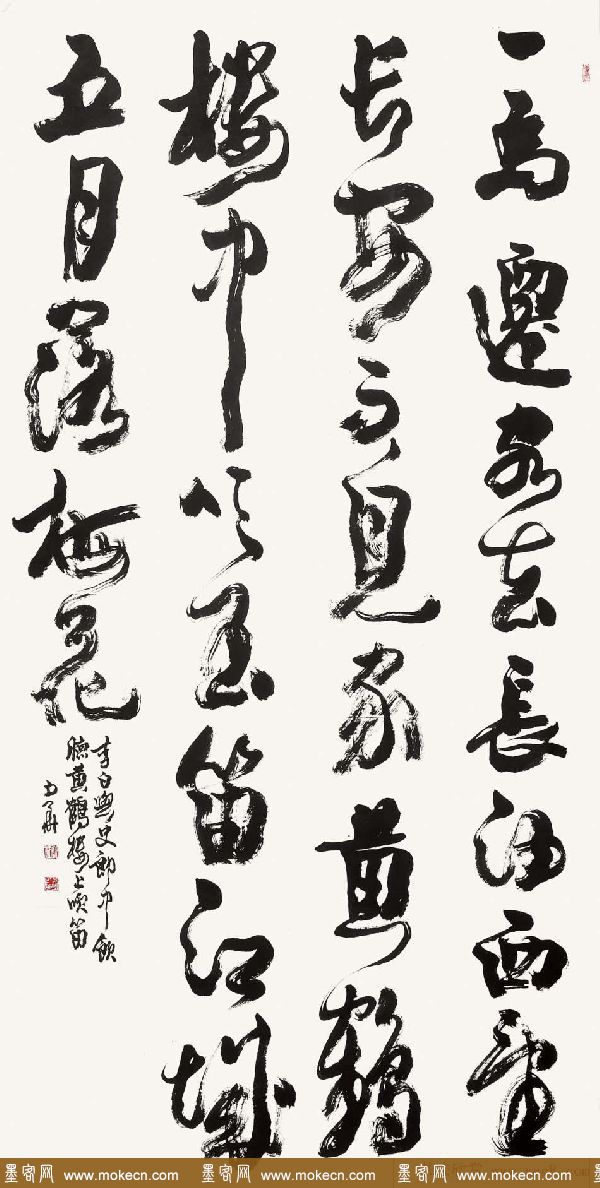 一為遷客去長沙西望
长安不見家黄鶴
樓中吹玉笛江城
五月落梅花
李白與史郎中飲
聽黄鶴樓上吹笛
墨客网 www.mokecn.com 墨客网 www.mokecn.com 墨客网 www.mokecn.com